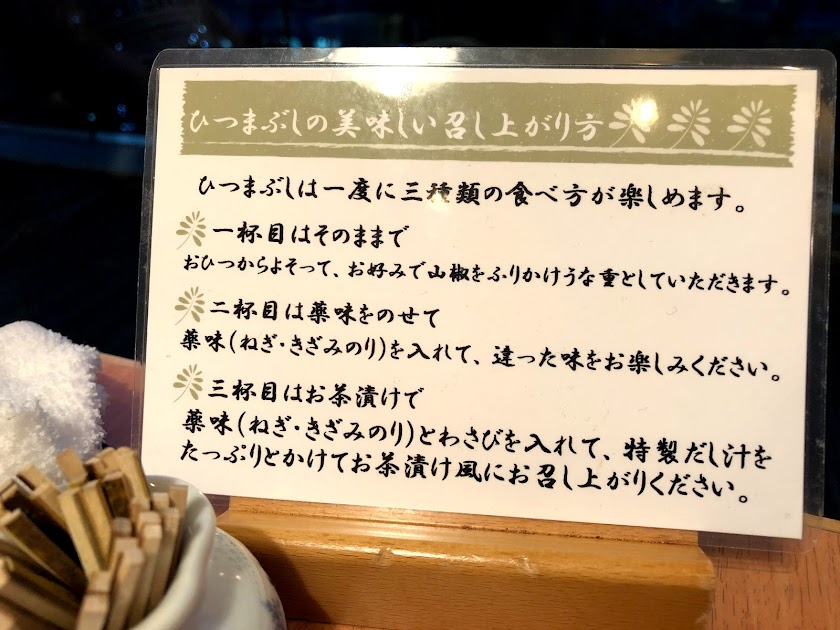 ひつまぶしの美味しい召し上がり方
ひつまぶしは一度に三種類の食べ方が楽しめます。
一杯目はそのままで
おひつからよそって、お好みで山椒をふりかけうな重としていただきます。
二杯目は薬味をのせて
薬味(ねぎ・きざみのり)を入れて、違った味をお楽しみください。
三杯目はお茶漬けで
薬味(ねぎ・きざみのり)とわさびを入れて、特製だし汁を
たっぷりとかけてお茶漬け風にお召し上がりください。